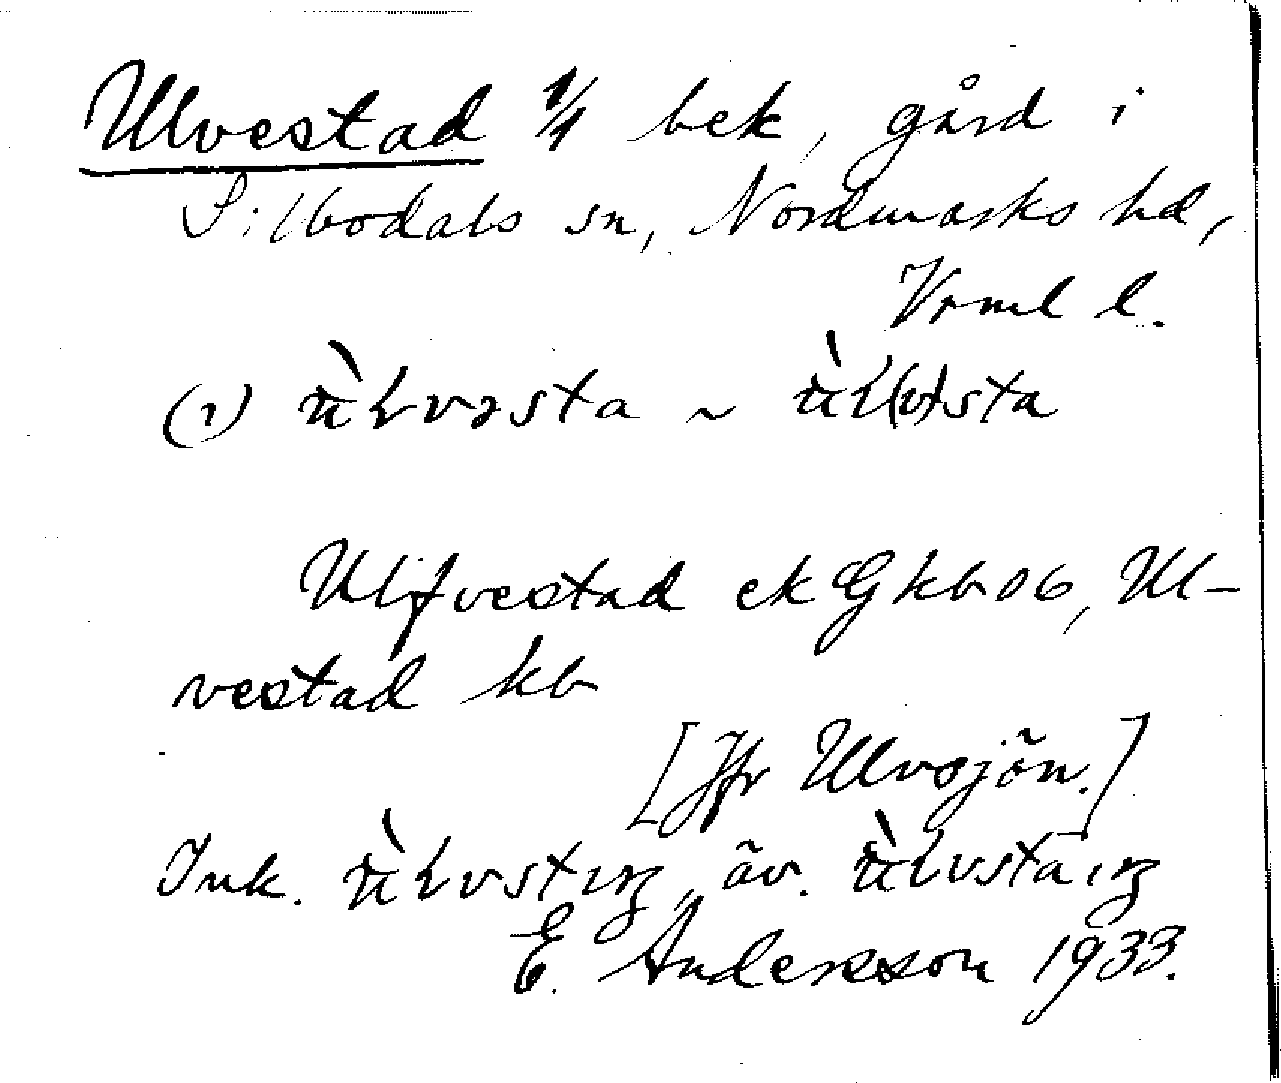 Ulvestad 1/1 bek, gård i
Silbodals sn, Nordmarks hd,
Vrml l.
(1) ùlvəsta ~ ùl(v)sta
Ulfvestad ek Gkb 06, Ul-
vestad kb
[Jfr Ulvsjön.]
Ink. ùlvstıŋ, äv. ùlvstaıŋ
E. Andersson 1933.